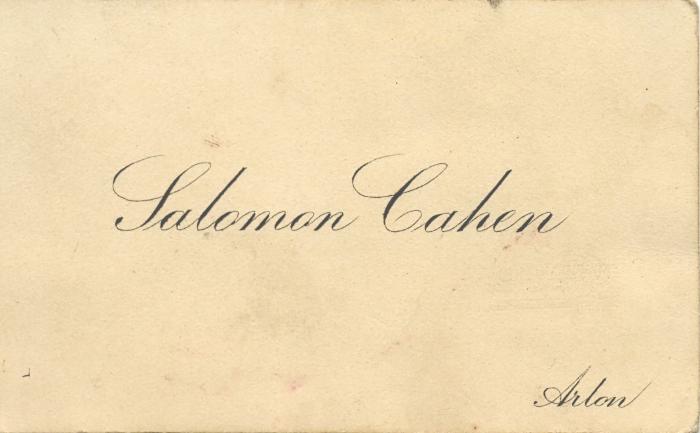 Salomon Cahen
Arlon